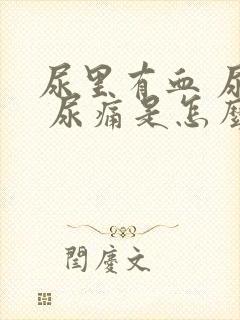 尿里有血 尿
尿痛是怎麼
閆慶文